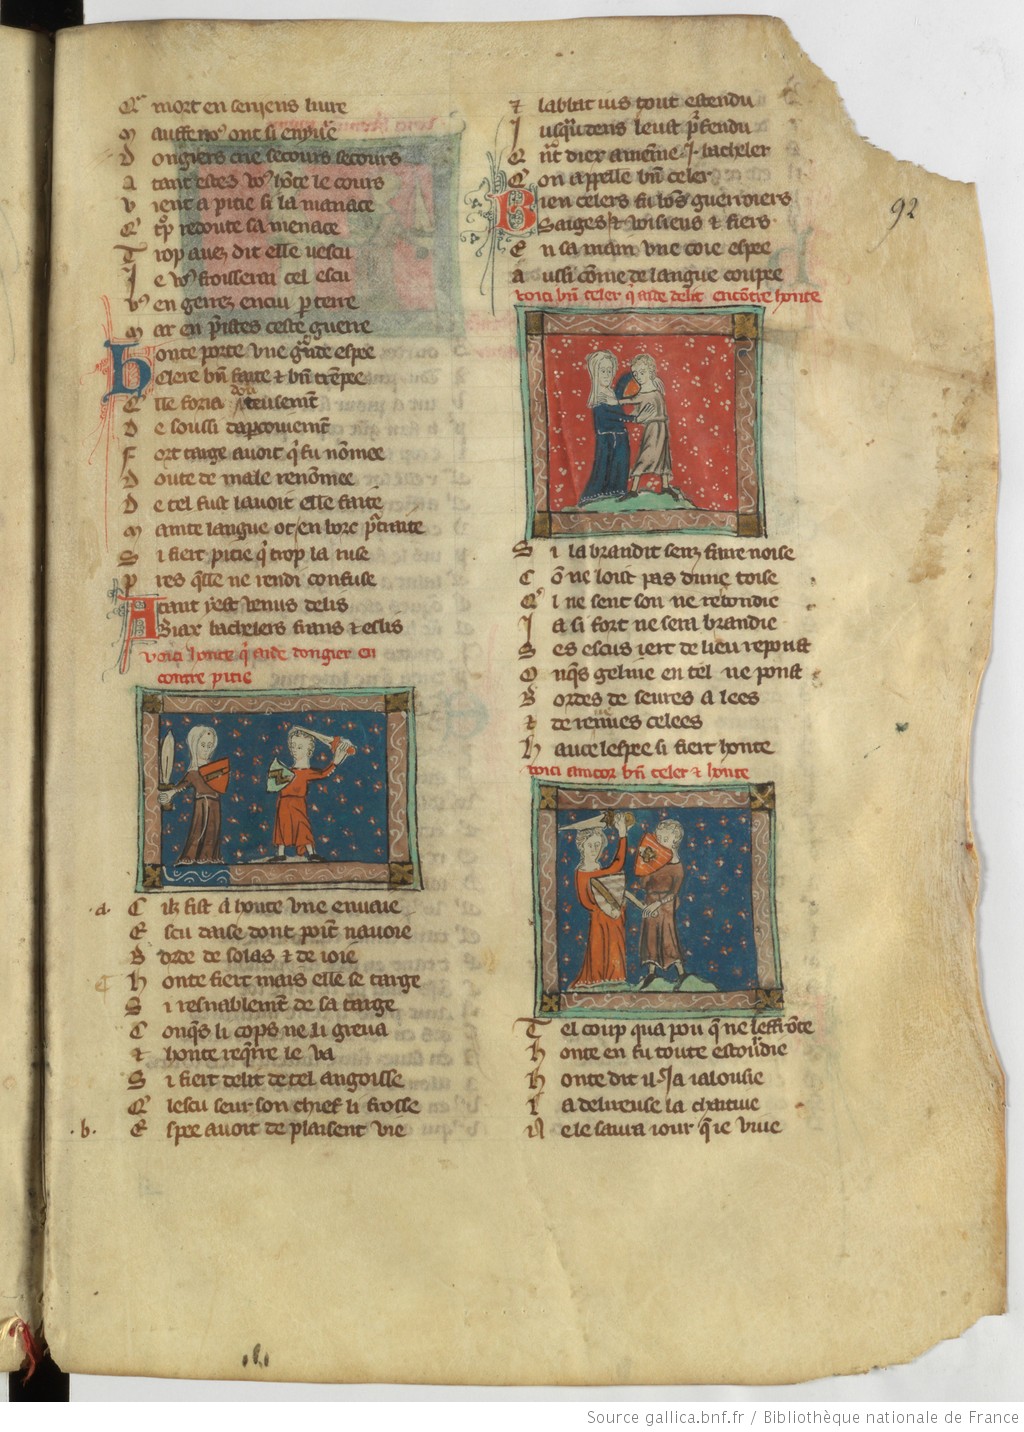 mort en seriens liure
D ongiers crie secours secours
A tant estes vos honte le cours
V ient a pitie si la manace
trop redoute sa menace
T rop auez dit elle vescu
I e vos froisserai cel escu
V os en gerrez encui par terre
M ar en preistes ceste guerre
H onte porte vne grande espee
Clere bien faite et bien trempee
E lle foria douteusement
D e soussi daparceuement
F ort targe auoit qui fu nomee
D oute de male renomee
D e tel fust lauoit elle faite
M ainte langue ot en lorc pourtraite
S i fiert pitie que trop la ruse
P res quelle ne rendi confuse
A tant y est venus delis
Biax bachelers frans et eslis
voici honte qui aide dongier en
contre pitie
.a. C ilz fist a honte vne enuaie
E spee auoit de plaisent vie
E scu daise dont point nauoie
B orde de solas et de ioie
H onte fiert mais elle se targe
S i resnablement de sa targe
C onques li cops ne li greua
et honte requerre le va
S i fiert delit de tel angoisse
Q lescu seur son chief li froisse
.b. E spee auoit de plaisent vie
7 labbat ius tout estendu
I usquau dens leust pourfendu
Q uant diex amenne .I. bacheler
Q on appelle bien celer
B ien celers fu bons guerroiers
Saiges et voiseus et fiers
E n sa main vne coie espee
A ussi comme de langue coupee
92
voici bien celer qui aide delit encontre honte
S i la brandit senz faire noise
C on ne loist pas dune toise
Q i ne sent son ne rebondie
I a si fort ne sera brandie
S es escus iert de lieu repoust
O nques geline en tel ne ponst
B ordes de seures alees
et de reuenues celees
H auce lespee si fiert honte
voici ancor bien celer et honte
T el coup qua pou que ne leffronte
H onte en fu toute estourdie
H onte dit il ia ialousie
L a delireuse la chaitiue
N e le saura iour que ie viue
Source gallica.bnf.fr / Bibliothèque nationale de France